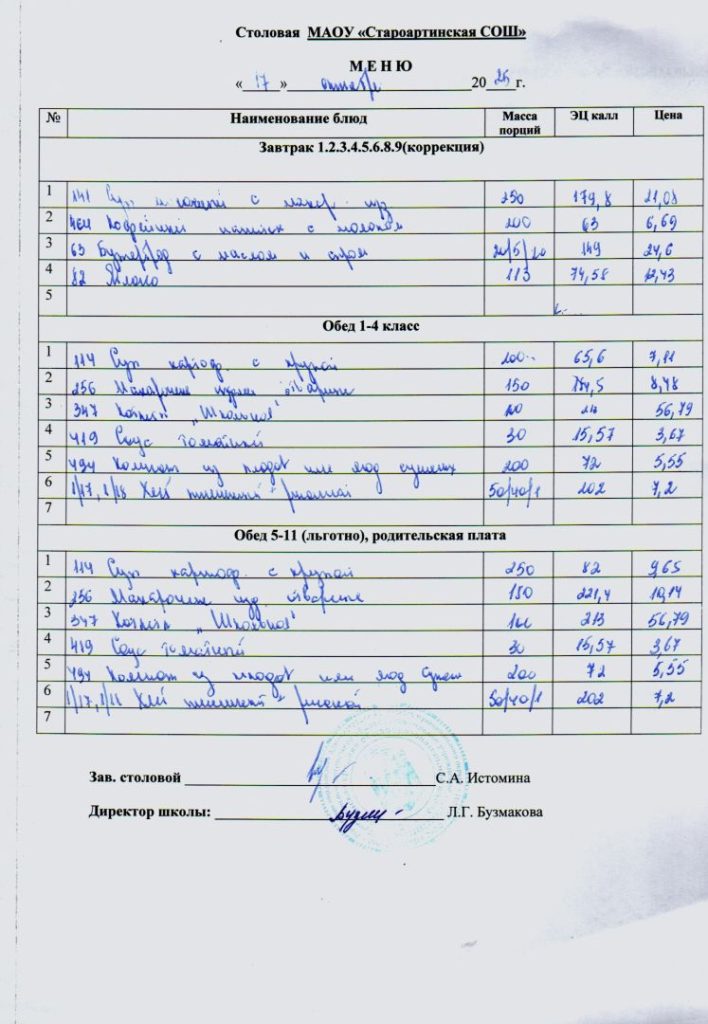 Столовая МАОУ «Староартинская СОШ»
М Е Н Ю
« 17 » октября 20 25 г.
№ Наименование блюд Масса порций ЭЦ калл Цена
Завтрак 1.2.3.4.5.6.8.9(коррекция)
1 141 Суп с макар. изд 250 179,8 21,08
2 464 Кофейный напиток с молоком 200 63 6,69
3 63 Бутерброд с маслом и сыром 20/5/20 149 24,6
4 82 Яблоко 113 74,58 12,43
5
Обед 1-4 класс
1 114 Суп картоф. с крупой 200 65,6 7,11
2 256 Макаронные отварные 150 8,48
3 347 "Школьная" 56,79
4 419 Соус томатный 30 15,57 3,67
5 494 Компот из плодов или ягод сушеных 200 72 5,55
6 1/17, 1/18 Хлеб пшеничный + ржаной 50/40/1 202 7,2
7
Обед 5-11 (льготно), родительская плата
1 114 Суп картоф. с крупой 250 82 9,65
2 256 Макаронные изд. отварные 180 221,4 10,14
3 347 "Школьная" 100 213 56,79
4 419 Соус томатный 30 15,57 3,67
5 494 Компот из плодов или ягод сушен 200 72 5,55
6 1/17, 1/18 Хлеб пшеничный + ржаной 50/40/1 202 7,2
7
Зав. столовой С.А. Истомина
Директор школы: Л.Г. Бузмакова